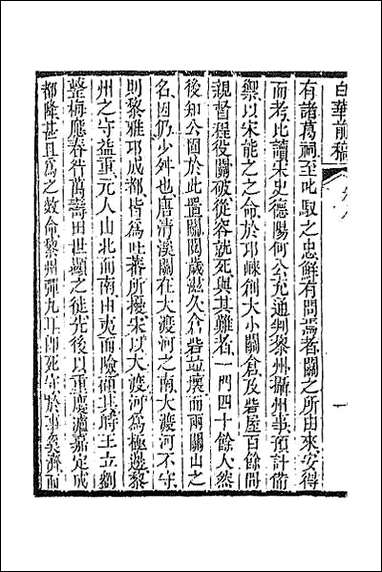 白華前稿
有諸葛祠至叱馭之忠鮮有問焉者關之所由來安得
而考比讀宋史德陽何公充通判黎州攝州事預計備
禦以宋能之之命於邛崍創大小關倉及砦屋百餘間
親督程役關破從容就死與其難者一門四十餘人然
後知公固於此置關閱歲滋久倉砦竝壞而兩關山之
名因仍少舛也唐清溪關在大渡河之南大渡河不守
則黎雅邛成都皆爲吐蕃所擾宋以大渡河爲極邊黎
州之守益重元人山北而南由夷而險衝其時王立劉
整梅應春昝萬壽田世顯之徒先後以重慶瀘嘉定成
都降甚且爲之效命黎州彈九耳卽死守於事奚濟而